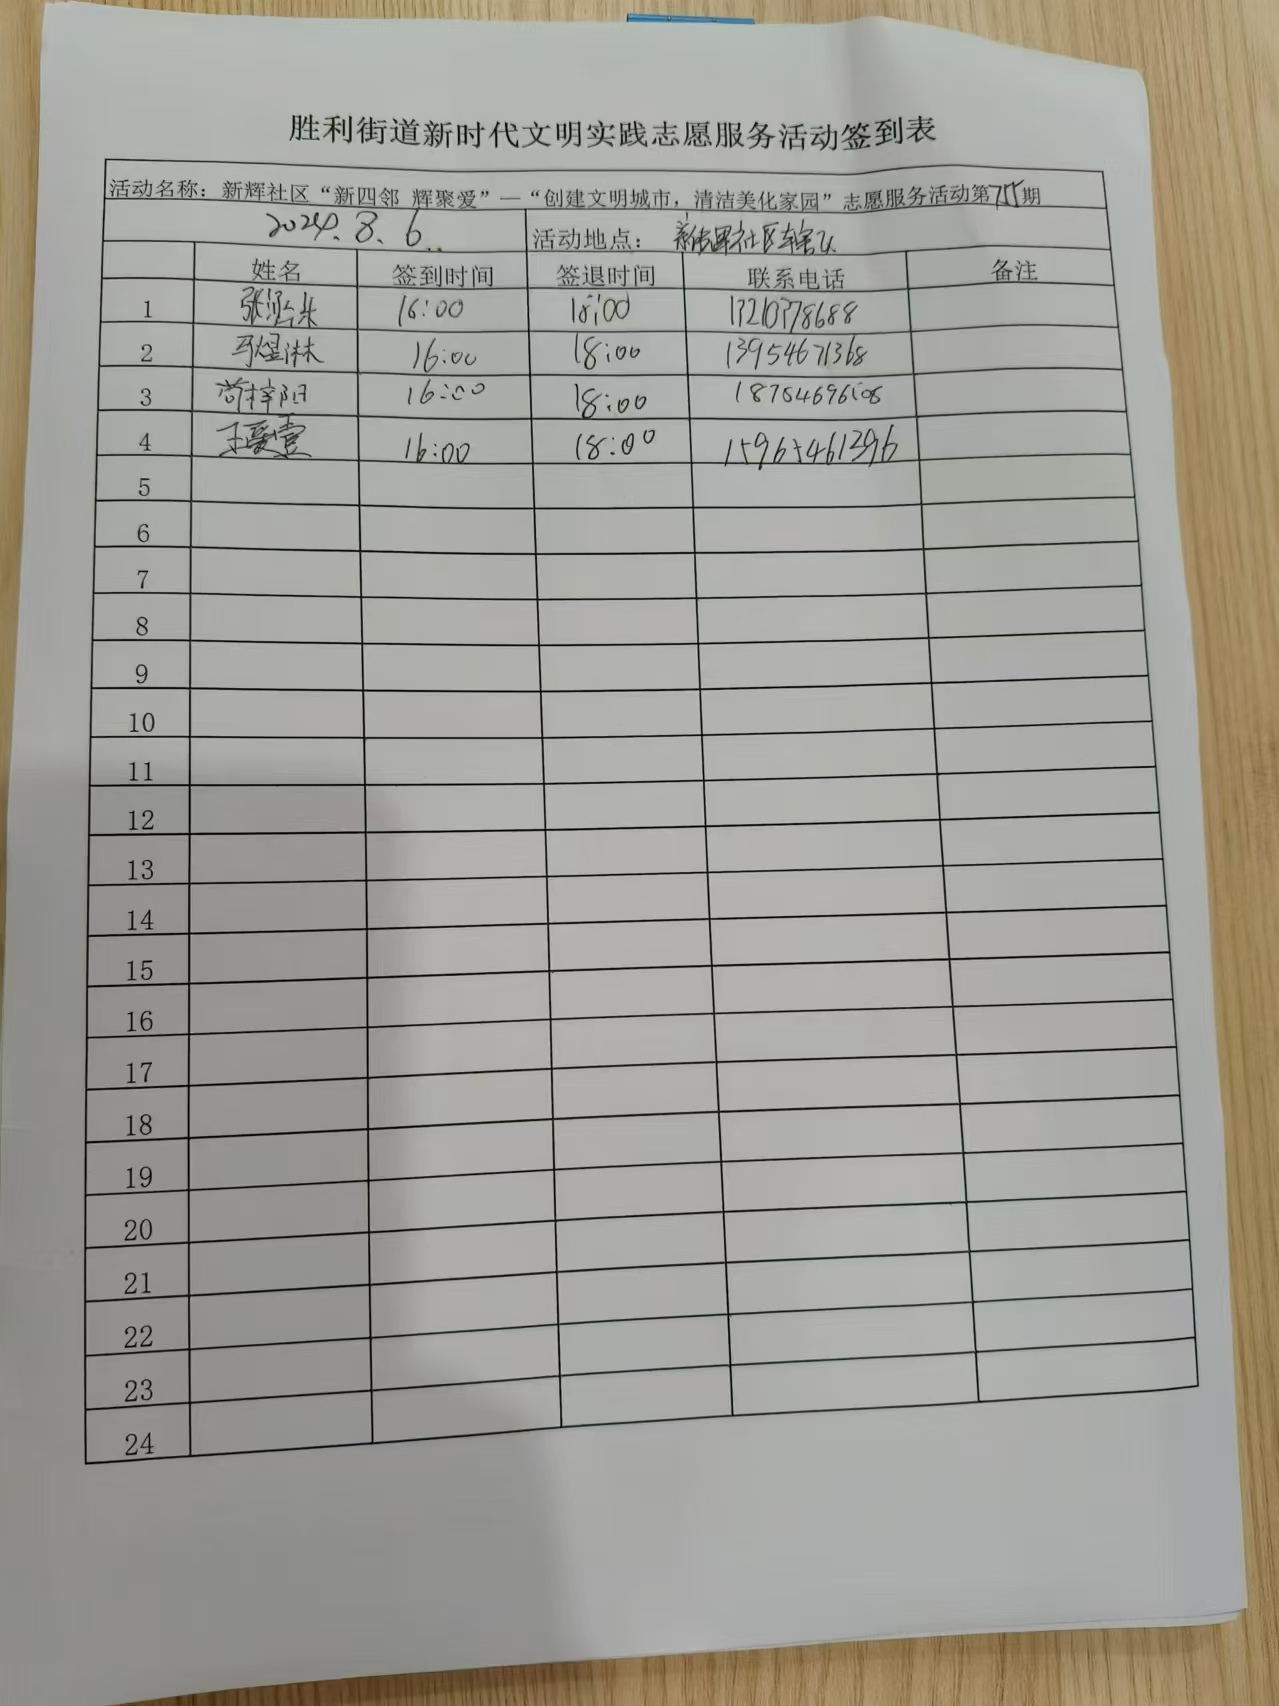 胜利街道新时代文明实践志愿服务活动签到表
活动名称：新辉社区“新四邻 辉聚爱”—“创建文明城市，清洁美化家园”志愿服务活动第755期
2024.8.6 活动地点：新辉社区辖区
姓名 签到时间 签退时间 联系电话 备注
1 16:00 18:00
2 马煜淋 16:00 18:00 13954671368
3 16:00 18:00
4 王爱壹 16:00 18:00 15965461396
5
6
7
8
9
10
11
12
13
14
15
16
17
18
19
20
21
22
23
24